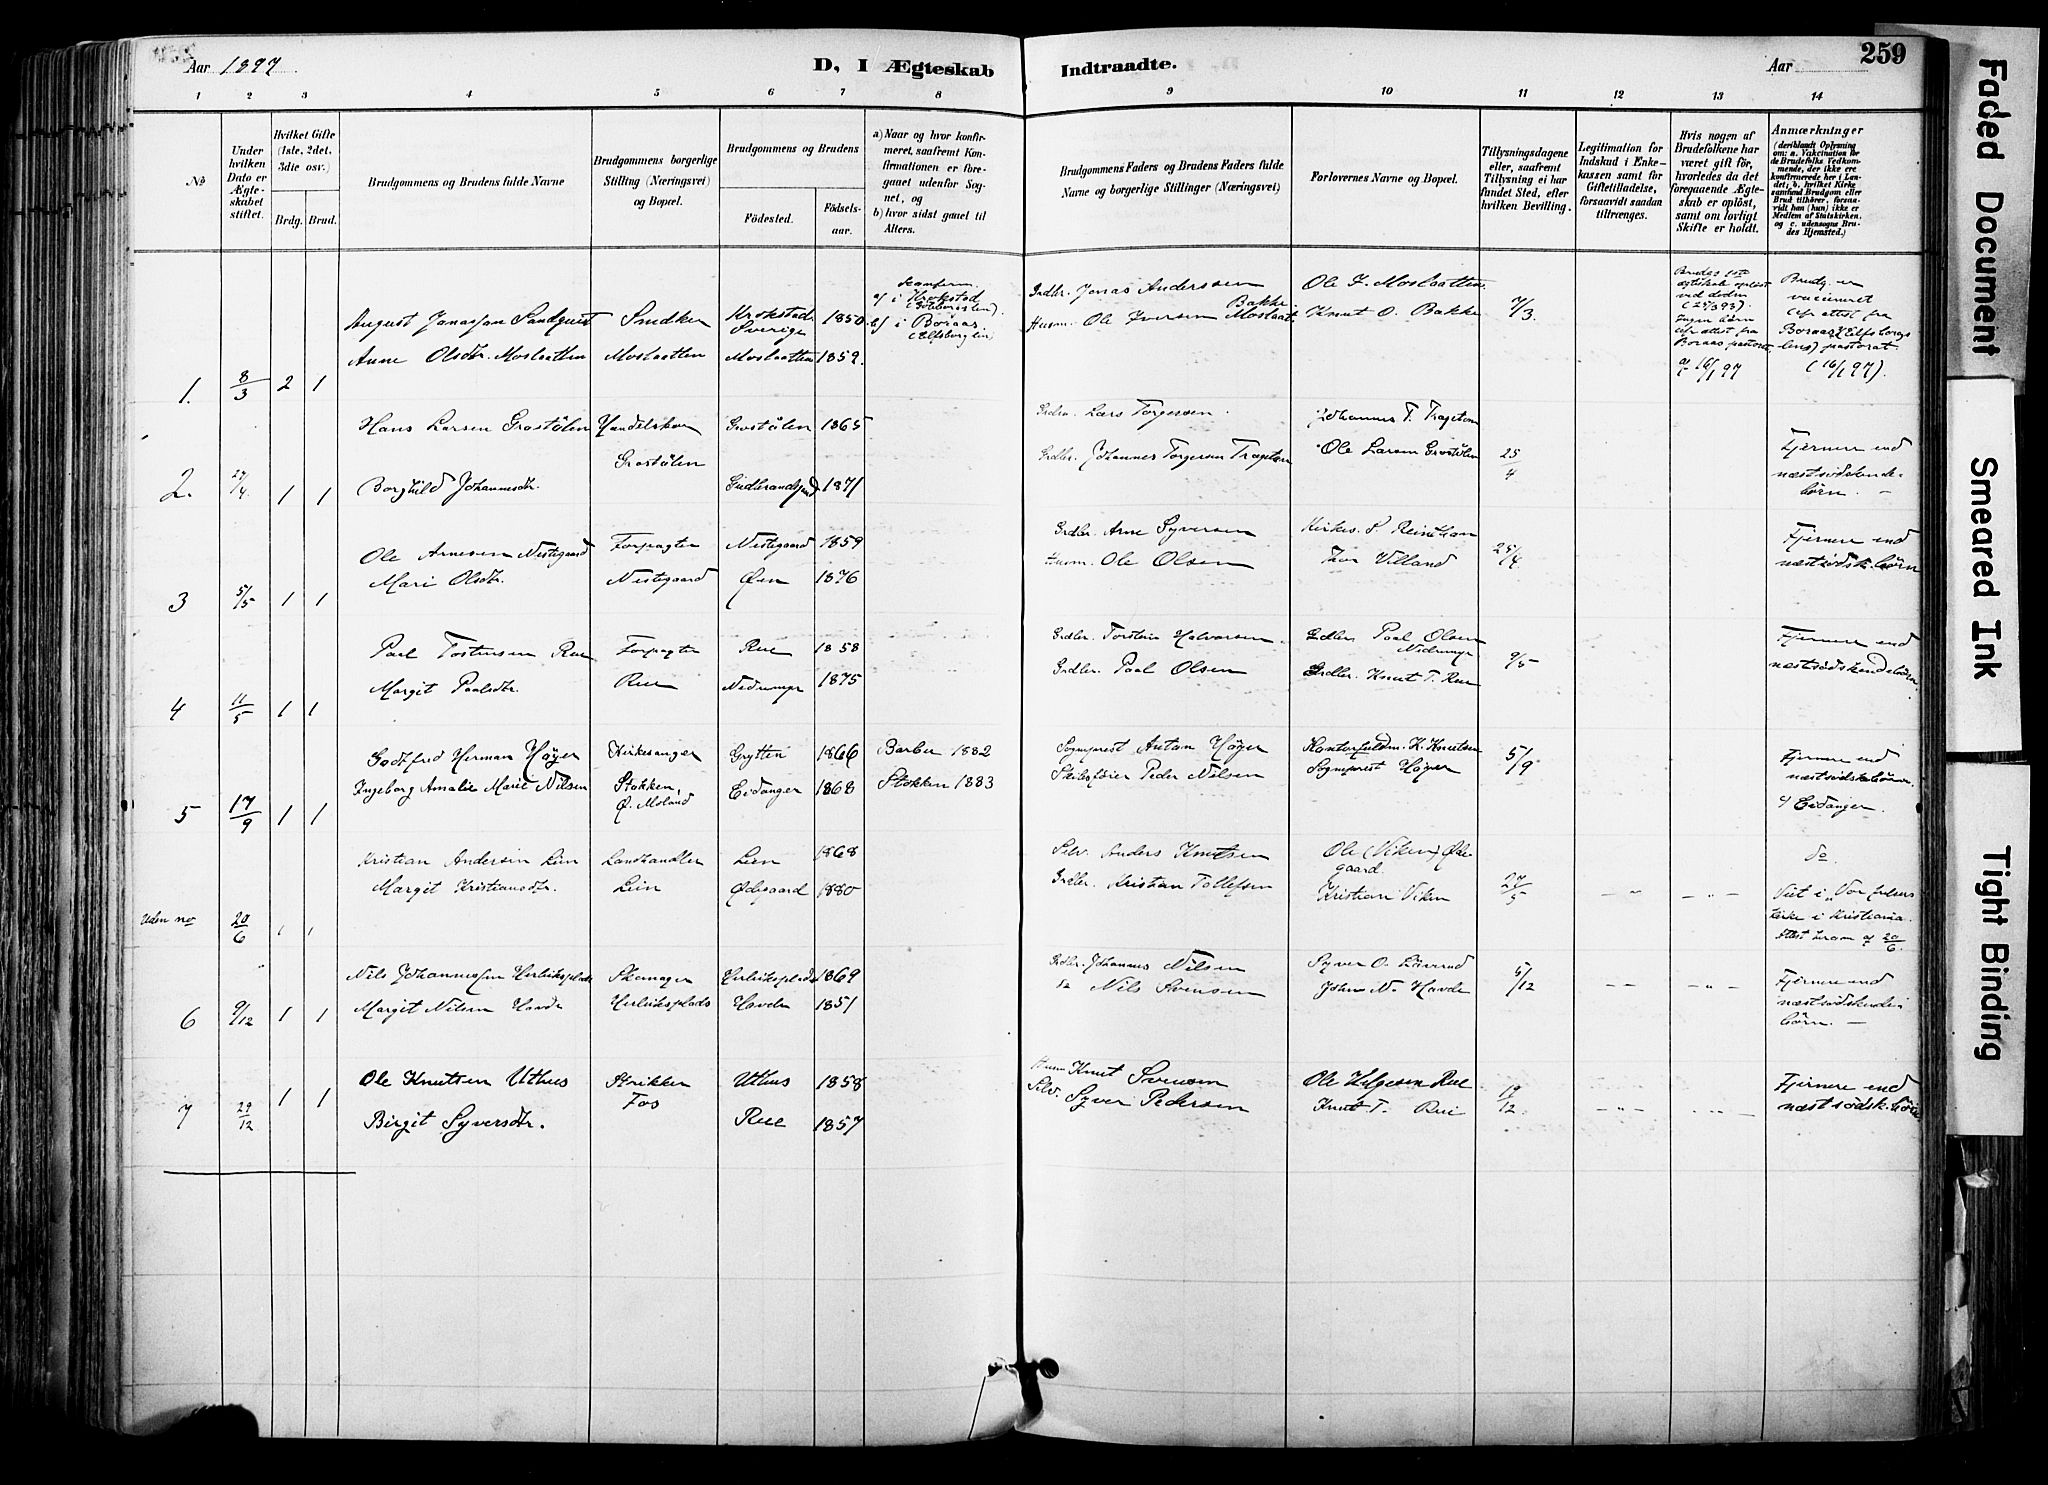 259
Aar 1897.
D, I Ægteskab Indtraadte.
Aar
1 2 3 4 5 6 7 8 9 10 11 12 13 14
No
Under hvilken Dato er Ægteskabet stiftet.
Hvilket Gifte (1ste, 2det, 3die osv.)
Brdg. Brud.
Brudgommens og Brudens fulde Navne
Brudgommens borgerlige Stilling (Næringsvei) og Bopæl.
Brudgommens og Brudens
Fødested.
Fødselsaar.
a) Naar og hvor konfirmeret, saafremt Konfirmationen er foregaaet udenfor Sognet, og
b) hvor sidst gaaet til Alters.
Brudgommens Faders og Brudens Faders fulde Navne og borgerlige Stillinger (Næringsvei)
Forlovernes Navne og Bopæl.
Tillysningsdagene eller, saafremt Tillysning ei har fundet Sted, efter hvilken Bevilling.
Legitimation for Indskud i Enkekassen samt for Giftetilladelse, forsaavidt saadan tiltrænges.
Hvis nogen af Brudefolkene har været gift før, hvorledes da det foregaaende Ægteskab er opløst, samt om lovligt Skifte er holdt.
Anmærkninger (deriblandt Oplysning om: a. Vakcination for de Brudefolks Vedkommende, der ikke ere konfirmerede her i Landet; b. hvilket Kirkesamfund Brudgom eller Brud tilhører, forsaavidt han (hun) ikke er Medlem af Statskirken, og c. udensogns Brudes Hjemsted.)
1. 8/3 2 1
August Jonasson Sandquist Smed Krokstad Sverige 1850
Anne Olsdtr. Moslaatten Moslaatten Moslaatten 1859.
a) i Krokstad
b) i Boraas
Grdbr. Jonas Anderssen
Husm. Ole Iversen Bakke Moslaat.
Ole I. Moslaatten
Knut O. Bakke
7/3.
ved døden
Ingen børn
Boraas pastorat
16/1 97
Brudg. er
vaccineret
attest fra
pastorat
(16/1 97).
2. 27/4. 1 1
Hans Larsen Grostølen Grostølen 1865
Grostølen
Borghild Johannesdtr. Gudbrandsgard 1871
Grdbr. Lars Torgersen
Grdbr. Johannes Torgersen Trageton
Johannes T. Trageton
Ole Larsen Grostølen
25/4
Fjernere end
næstsødskende-
børn.
3 5/5 1 1
Ole Arnesen Nestegaard Forpagter Nestegaard 1859
Mari Olsdtr. Nestegaard Øen 1876
Grdbr. Arne Syversen
Husm. Ole Olsen
Kirkes. S. Reinton
Thor Villand
25/4
Fjernere end
næstsødsk. børn
4 11/5 1 1
Paul Tostensen Rue Forpagter Rue 1858
Margit Paalsdtr. Rue 1875
Grdbr. Torstein Halvorsen
Grdbr. Paal Olsen
Grdbr. Paal Olsen
Grdbr. Knut T. Rue
9/5
Fjernere end
næstsødskendebørn.
5 17/9 1 1
Godtfred Herman Høyer Kirkesanger Grytten 1866 Barbu 1882
Ingeborg Amalie Marie Nilsen Stokken, Eidanger 1868 Stokken 1883
Ø. Moland
Sogneprest Anton Høyer
Skibsfører Peder Nilsen
Kontorfuldm. K. Knutsen
Sogneprest Høyer
5/9
Fjernere end
næstsødskebørn.
c/ Eidanger.
Uden no 20/6 1 1
Kristian Andersen Lien Landhandler Lien 1868
Margit Kristiansdtr. Lien Ødegaard 1880
Selv. Anders Knutsen
Grdbr. Kristian Tollefsen
Ole (Viken) Øde-
gaard.
Kristian Viken
27/5
do.
Viet i Vor frelsers
kirke i Kristiania.
Attest herom af 20/6.
6 9/12 1 1
Nils Johannessen Herleiksplads Skomager Herleiksplads 1869
Margit Nilsen Havde Herleiksplads Havde 1851
Grdbr. Johannes Nilsen
do Nils Svensen
Syver O.
John N. Havde
5/12
Fjernere end
næstsødskende-
børn. —
7 29/12 1 1
Ole Knutsen Uthus Uthus 1858
Fos
Birgit Syversdtr. Rue 1857
Husm Knut Svensen
Selv. Syver Pedersen
Ole Helgesen Rue
Knut T. Rue
19/12
Fjernere end
næstsødsk. børn
Faded Document
Smeared Ink
Tight Binding